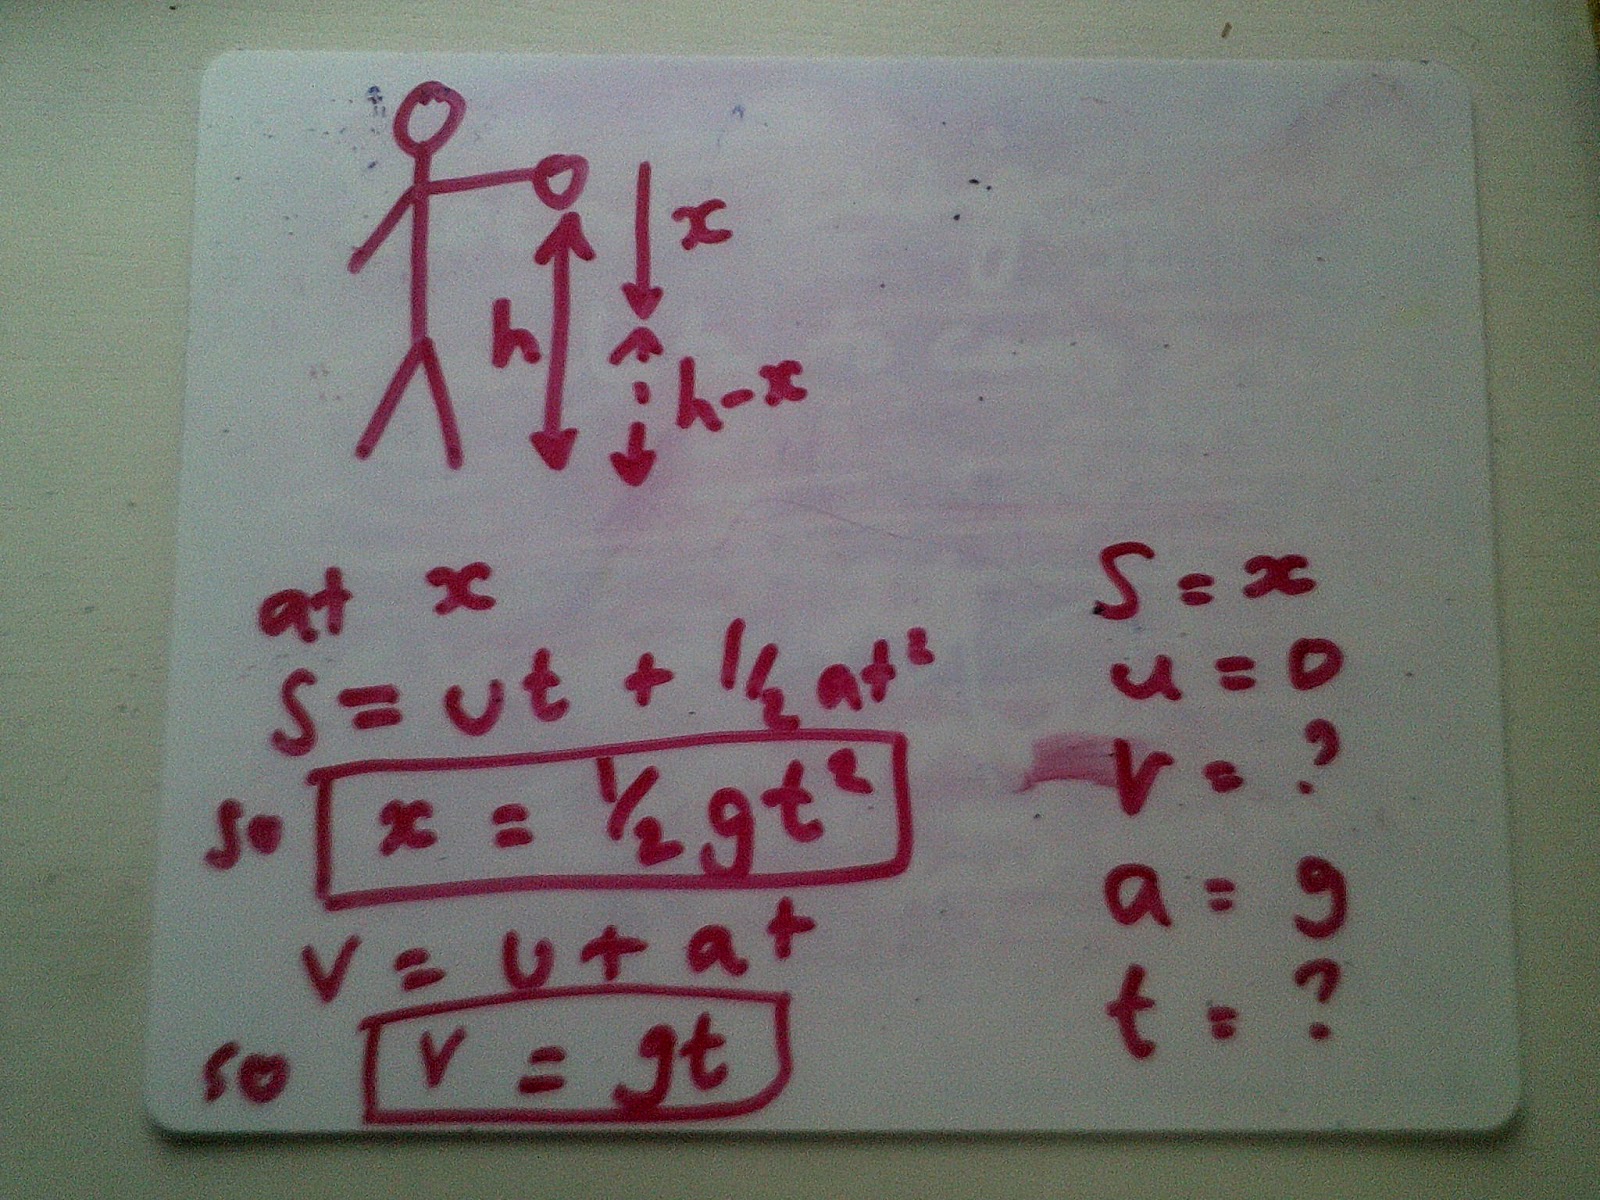 x
h
h-x
at x
S = ut + 1/2 at²
so x = 1/2 gt²
v = u + at
so v = gt
S = x
u = 0
v = ?
a = g
t = ?